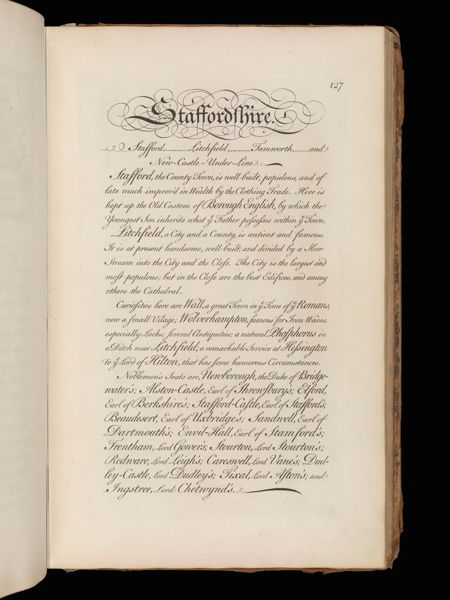 127
Staffordshire.
Stafford,........ Litchfield,........ Tamworth,...... and
New-Castle-Under-Line.
Stafford, the County Town, is well-built, populous, and of
late much improv'd in Wealth by the Clothing Trade. Here is
kept up the Old Custom of Borough English, by which the
Youngest Son inherits what yͤ Father possesses within yͤ Town.
Litchfield, a City and a County, is antient and famous.
It is at present handsome, well-built, and divided by a Slow
Stream into the City and the Close. The City is the largest and
most populous; but in the Close are the best Edifices, and among
others the Cathedral.
Curiosities here are Wall, a great Town in yͤ Time of yͤ Romans,
now a small Village; Wolverhampton, famous for Iron Wares,
especially Locks; several Antiquities; a natural Phosphorus in
a Ditch near Litchfield; a remarkable Service at Hessington
to yͤ Lord of Hilton, that has some humorous Circumstances.
Noblemen's Seats are, Newborough, the Duke of Bridge-
water's; Alston-Castle, Earl of Shrewsbury's; Elford,
Earl of Berkshire's; Stafford-Castle, Earl of Stafford's;
Beaudesert, Earl of Uxbridge's; Sandwell, Earl of
Dartmouth's; Envil-Hall, Earl of Stamford's;
Trentham, Lord Gower's; Stourton, Lord Stourton's;
Redware, Lord Leigh's; Careswell, Lord Vane's; Dud-
ley-Castle, Lord Dudley's; Tixal, Lord Aston's; and
Ingstree, Lord Chetwynd's.